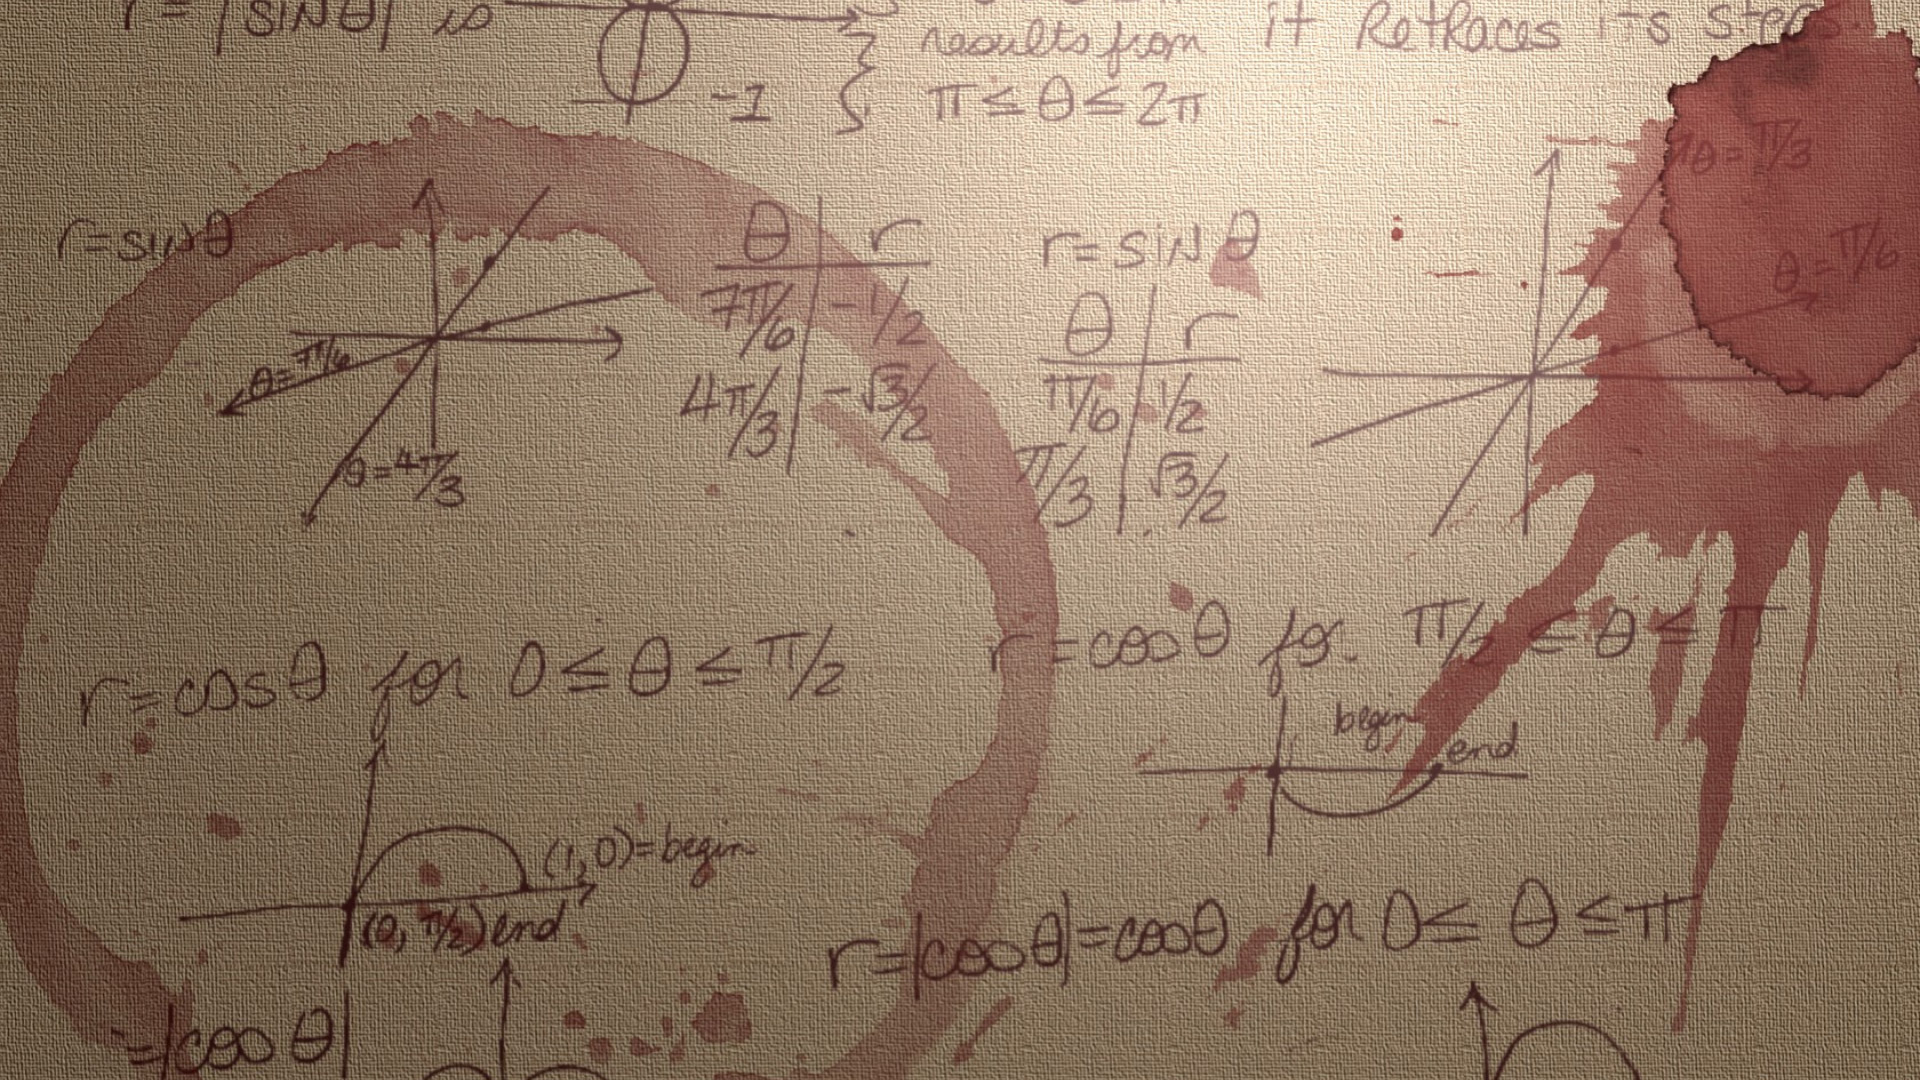 r = |SINθ| is
-1
results from
π ≤ θ ≤ 2π
it Retraces its steps.
r=sinθ
θ=π/6
θ=4π/3
θ r
7π/6 -1/2
4π/3 -√3/2
r=SINθ
θ r
π/6 1/2
π/3 √3/2
θ=π/3
θ=π/6
r=cosθ for 0≤θ≤π/2
(1,0)=begin
(0, π/2) end
r=cosθ for π/2 ≤ θ ≤ π
begin
end
r=|cosθ|=cosθ for 0≤ θ ≤π
=|cosθ|